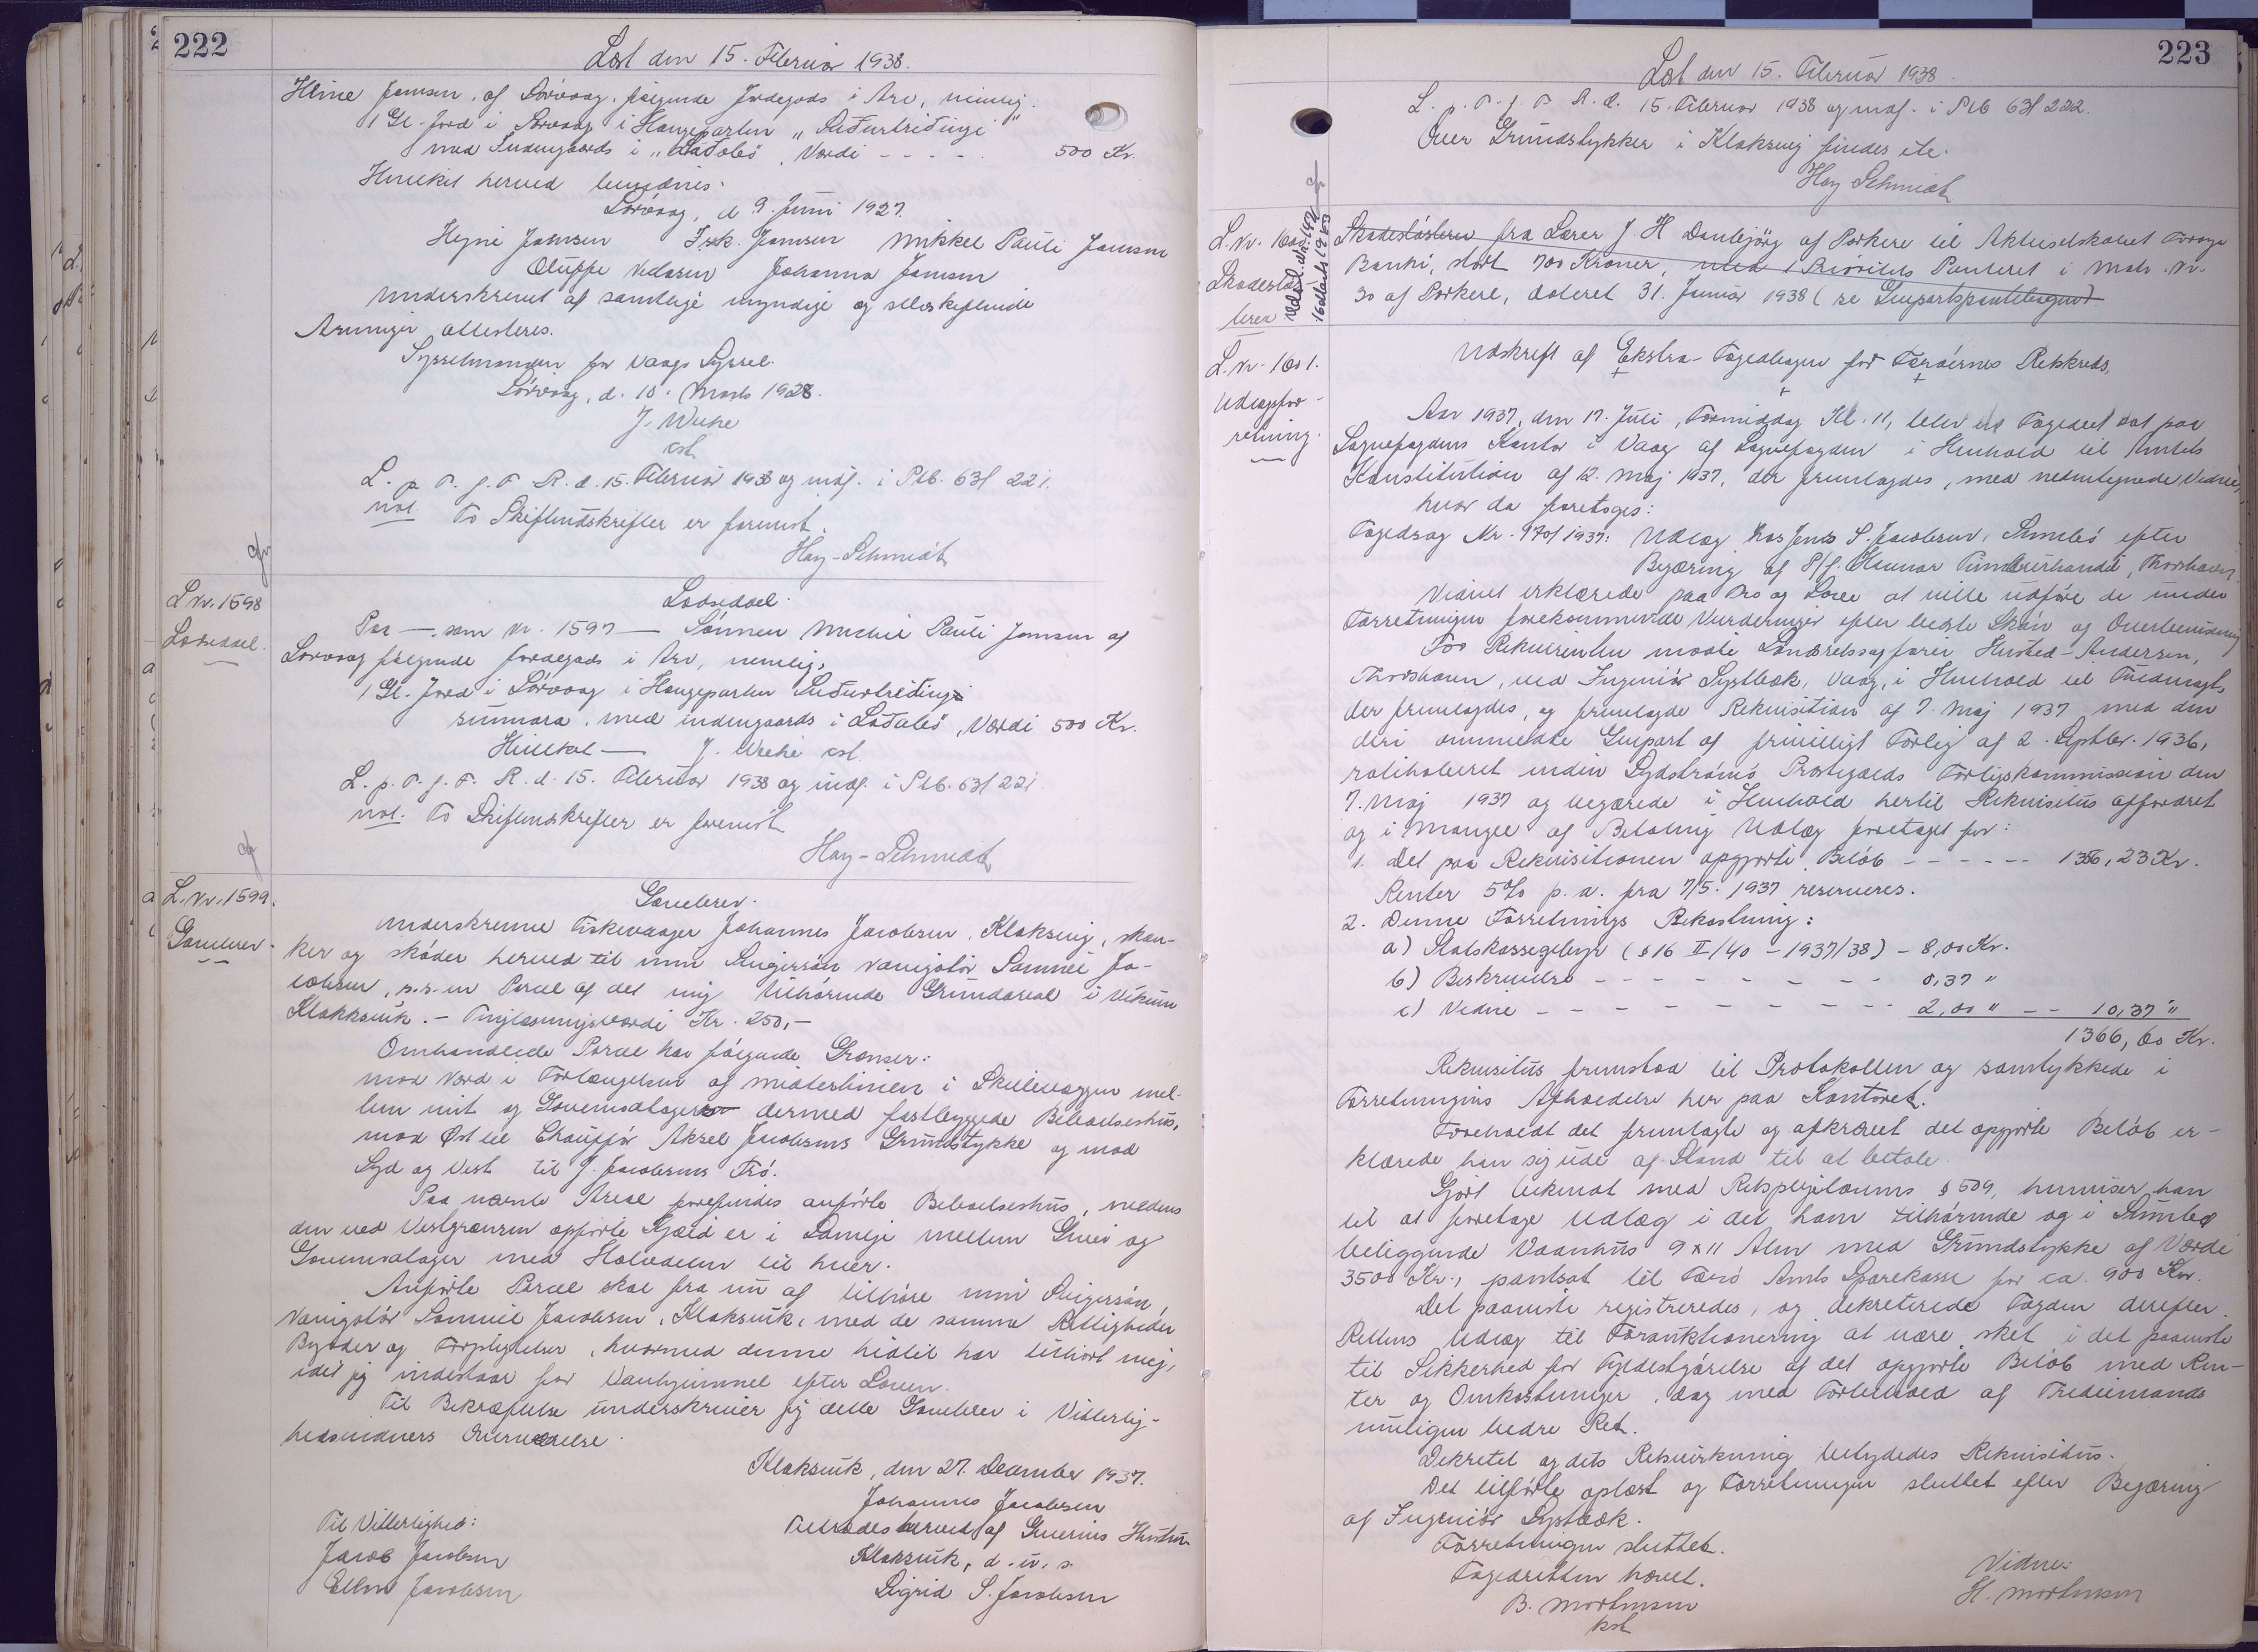 222
Læst den 15. Februar 1938.
Heine Joensen, af Sörvaag, følgende Jordegods i Arv, nemlig.
1 Gl. Jord i Sørvaag i Haugeparten "Suðurtriðingi"
med Indengaards i "Laðabö, Værdi - - - - 500 Kr.
Hvilket herved bevidnes.
Sörvaag, d 9. Juni 1927.
Heine Joensen Frk. Joensen Mikkel Pauli Joensen
Johanna Joensen
Underskrevet af samtlige myndige og selvskiftende
Arvinger attesteres.
Sysselmanden for Vaagø Syssel.
Sörvaag, d. 10. Marts 1928.
cst
L. p. T. f. F. R. d. 15. Februar 1938 og indf. i Ptb. 63 f 221.
not. To Skifteudskrifter er forevist.
Hay-Schmidt
L. Nr. 1598
Lodseddel.
Lodseddel.
Par — som Nr. 1597 — Sönnen Michel Pauli Joensen af
Sørvaag følgende Jordegods i Arv, nemlig.
1 Gl. Jord i Sörvaag i Haugeparten Suðurtriðingi
sunnara, med indengaards i Laðabö, Værdi 500 Kr.
Hvilket — cst.
L. p. T. f. F. R. d. 15. Februar 1938 og indf. i Ptb. 63 f 221
not. To Skifteudskrifter er forevist
Hay-Schmidt
L. Nr. 1599.
Gavebrev.
Gavebrev.
Underskrevne Fiskevrager Johannes Jacobsen, Klaksvig, skæn-
ker og skøder herved til min Stigersøn Samuel Ja-
cobsen, s.s. en Parcel af det mig tilhørende Grundareal i Víkum
Klakksvík. - Tinglæsningsværdi Kr. 250,-
Omhandlede Parcel har følgende Grænser:
mod Nord i Forlængelsen af Midterlinien i Skillevæggen mel-
lem mit og Gavemodtagerens dermed fastbyggede Beboelseshus,
mod Øst til Chauffør Aksel Jacobsens Grundstykke og mod
Syd og Vest til J. Jacobsens Trö.
Paa nævnte Areal forefindes anførte Beboelseshus, medens
den ved Vestgrænsen opførte Hjæld er i Sameje mellem Giver og
Gavemodtager med Halvdelen til hver.
Anførte Parcel skal fra nu af tilhøre min Stigersøn,
Samuel Jacobsen, Klaksvik, med de samme Rettigheder
Byrder og Forpligtelser, hvormed denne hidtil har tilhørt mig,
idet jeg indestaar for Vanhjemmel efter Loven.
Til Bekræftelse underskriver jeg dette Gavebrev i Vitterlig-
hedsvidners Overværelse.
Klaksvik, den 27. December 1937.
Johannes Jacobsen
Tiltrædes herved af Giverens Hustru
Klaksvik, d. u. s.
Sigrid S. Jacobsen
Til Vitterlighed:
Jacob Jacobsen
Ellen Jacobsen
223
Læst den 15. Februar 1938.
L. p. T. f. F. R. d. 15. Februar 1938 og indf. i Ptb 63 f 222.
Over Grundstykker i Klaksvig findes ikke.
Hay Schmidt
L. Nr. 1600
Skadesløs-
brev
Skadesløsbrev fra Lærer J. H Danbjörg af Porkere til Aktieselskabet Føroya
Banki, stort 700 Kroner, med 1 Prioritets Panteret i Matr. Nr.
30 af Porkere, dateret 31. Januar 1938 (se Genpartspantebogen).
L. Nr. 1601.
Udlægsfor-
retning.
Udskrift af Ekstra-Fogedbogen for Færøernes Retskreds.
Aar 1937, den 17. Juli, Formiddag Kl. 11, blev en Fogedret sat paa
Sognefogdens Kontor i Vaag af Sognefogden i Henhold til Amtets
Konstitution af 12. Maj 1937, der fremlagdes, med nedentegnede Vidne,
hvor da foretoges:
Fogedsag Nr. 970/1937: Udlæg hos Jens S. Jacobsen, Sumbö efter
Begæring af P/f. Havnar Timburhandil, Thorshavn.
Vidnet erklærede paa Tro og Love at ville udføre de under
Forretningen forekommende Vurderinger efter bedste Skøn og Overbevisning
For Rekvirenten mødte Landsretssagfører Husted-Andersen,
Thorshavn, ved Ingeniør Lystbæk, Vaag, i Henhold til Fuldmagt,
der fremlagdes, og fremlagde Rekvisition af 7. Maj 1937 med den
deri ommeldte Genpart af frivilligt Forlig af 2. Septbr. 1936,
ratihaberet inden Sydströmø Præstegælds Forligskommission den
7. Maj 1937 og begærede i Henhold hertil Rekvisitus affordret
og i Mangel af Betaling Udlæg foretaget for:
1. Det paa Rekvisitionen opgjorte Beløb - - - - - - 1356,23 Kr.
Renter 5% p. a. fra 7/5. 1937 reserveres.
2. Denne Forretnings Bekostning:
a) Statskassegebyr (§ 16 II/40 - 1937/38) - 8,00 Kr.
b) Beskrivelse - - - - - - - 0,37 "
c) Vidne - - - - - - - - 2,00 " - - 10,37 "
1366,60 Kr.
Rekvisitus fremstod til Protokollen og samtykkede i
Forretningens Afholdelse her paa Kontoret.
Foreholdt det fremlagte og afkrævet det opgjorte Beløb er-
klærede han sig ude af Stand til at betale.
Gjort bekendt med Retsplejelovens § 509, henviser han
til at foretage Udlæg i det ham tilhørende og i Sumbø
beliggende Vaanhus 9 x 11 Alen med Grundstykke af Værdi
3500 Kr., pantsat til Færø Amts Sparekasse for ca. 900 Kr.
Det paaviste registreredes, og dekreterede Fogden derefter
Rettens Udlæg til Forauktionering at være sket i det paaviste
til Sikkerhed for Fyldestgjørelse af det opgjorte Beløb med Ren-
ter og Omkostninger, dog med Forbehold af Trediemands
muligen bedre Ret.
Dekretet og dets Retsvirkning betydedes Rekvisitus.
Det tilførte oplæst og Forretningen sluttet efter Begæring
af Ingeniør Lystbæk.
Forretningen sluttet.
Fogedretten hævet.
B. Mortensen
kst
Vidne:
H. Mortensen